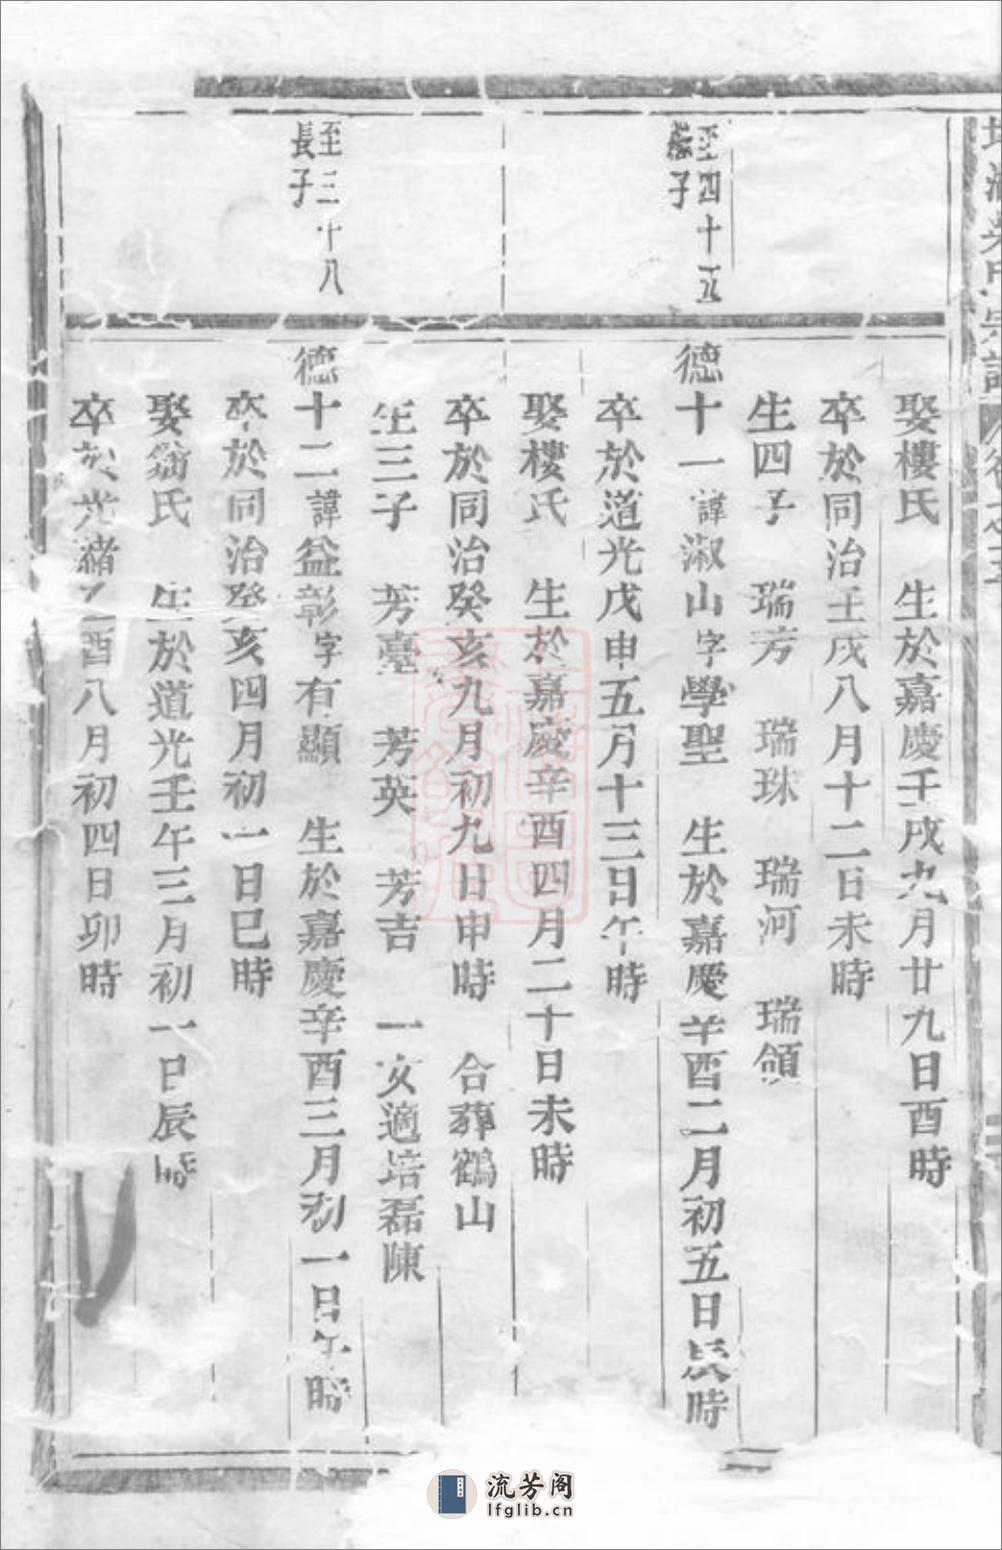 娶樓氏　生於嘉慶壬戌九月廿九日酉時
卒於同治壬戌八月十二日未時
生四子　瑞芳　瑞珠　瑞河　瑞領
至四十五
子
德十一諱淑山字學聖　生於嘉慶辛酉二月初五日辰時
卒於道光戊申五月十三日午時
娶樓氏　生於嘉慶辛酉四月二十日未時
卒於同治癸亥九月初九日申時　合葬鶴山
生三子　芳臺　芳英　芳吉　一女適培磊陳
至三十八
長子
德十二諱益彰字有顯　生於嘉慶辛酉三月初一日午時
卒於同治癸亥四月初一日巳時
娶翁氏　生於道光壬午三月初一日辰時
卒於光緒乙酉八月初四日卯時
流芳阁
lfglib.cn